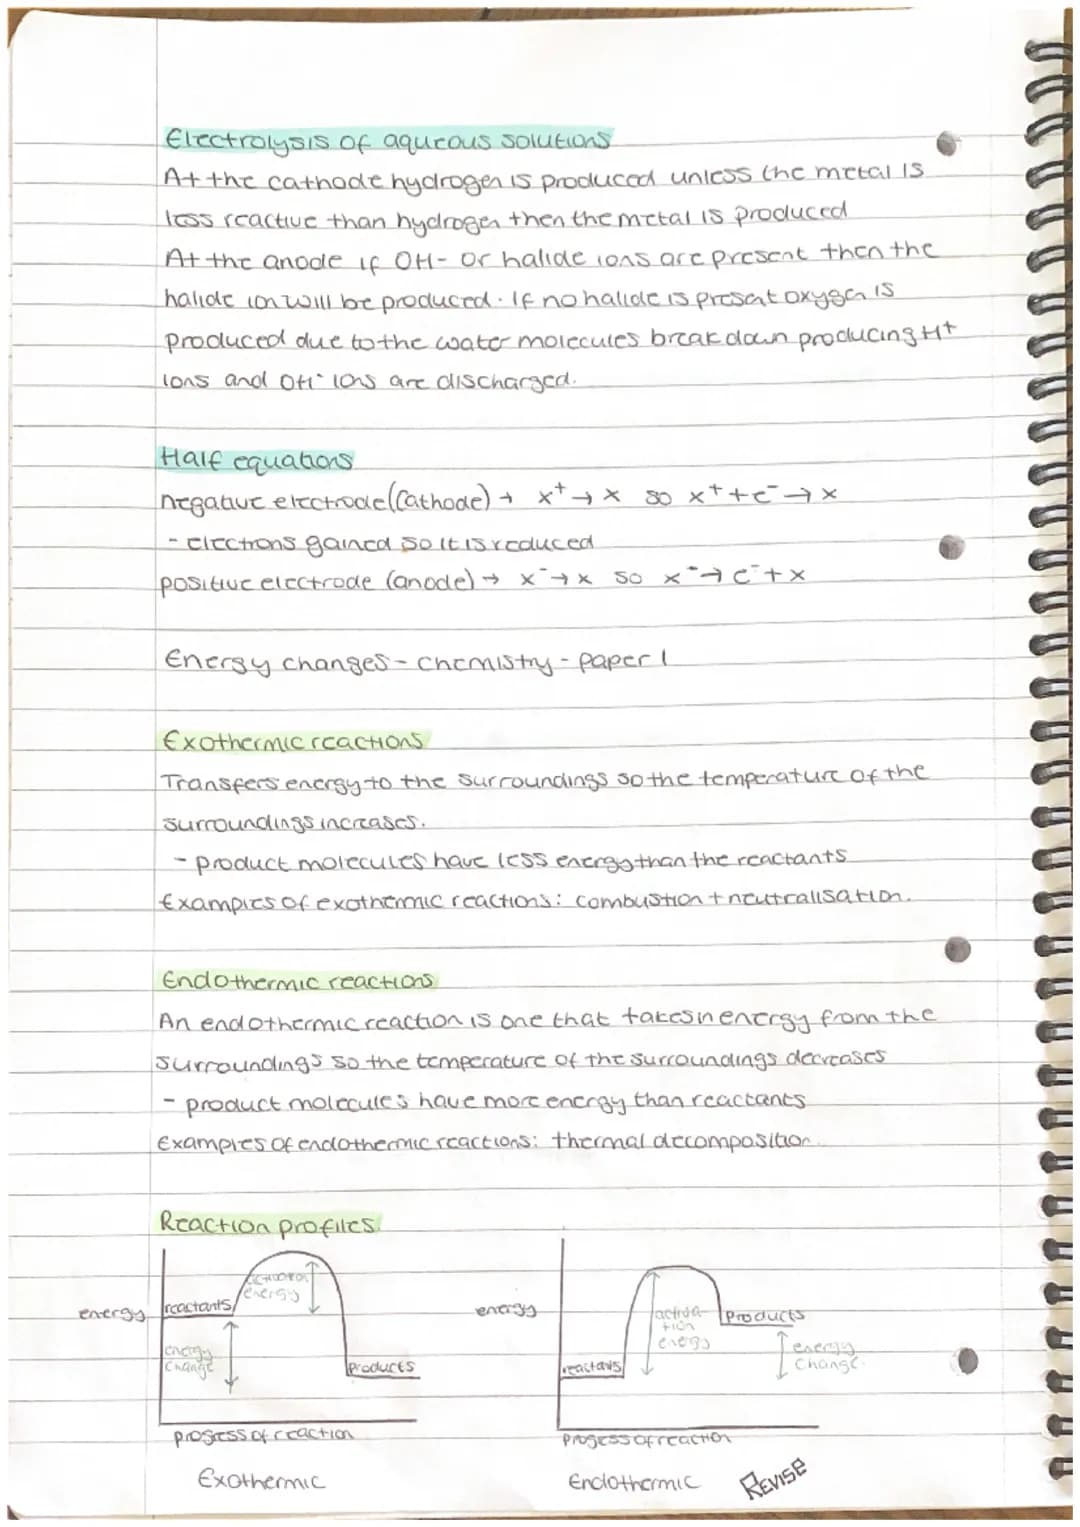 Electrolysis of aqueous solutions
At the cathode hydrogen is produced unless the metal is
less reactive than hydrogen then the metal is produced
At the anode if OH- or halide ions are present then the
halide ion will be produced. If no halide is present oxygen is
produced due to the water molecules break down producing H+
ions and OH- ions are discharged.
Half equations
negative electrode (cathode) → x+ → x so x+ + e- → x
- electrons gained so it is reduced
positive electrode (anode) → x- → x so x- → e- + x
Energy changes - chemistry - paper 1
Exothermic reactions
Transfers energy to the surroundings so the temperature of the
surroundings increases.
- product molecules have less energy than the reactants
Examples of exothermic reactions: combustion + neutralisation.
Endothermic reactions
An endothermic reaction is one that takes in energy from the
surroundings so the temperature of the surroundings decreases
- product molecules have more energy than reactants
Examples of endothermic reactions: thermal decomposition.
Reaction profiles.
energy
reactants
activation
energy
energy
change
products
progress of reaction
Exothermic
energy
reactants
activa-
tion
energy
products
energy
change.
Progess of reaction
Endothermic
REVISE